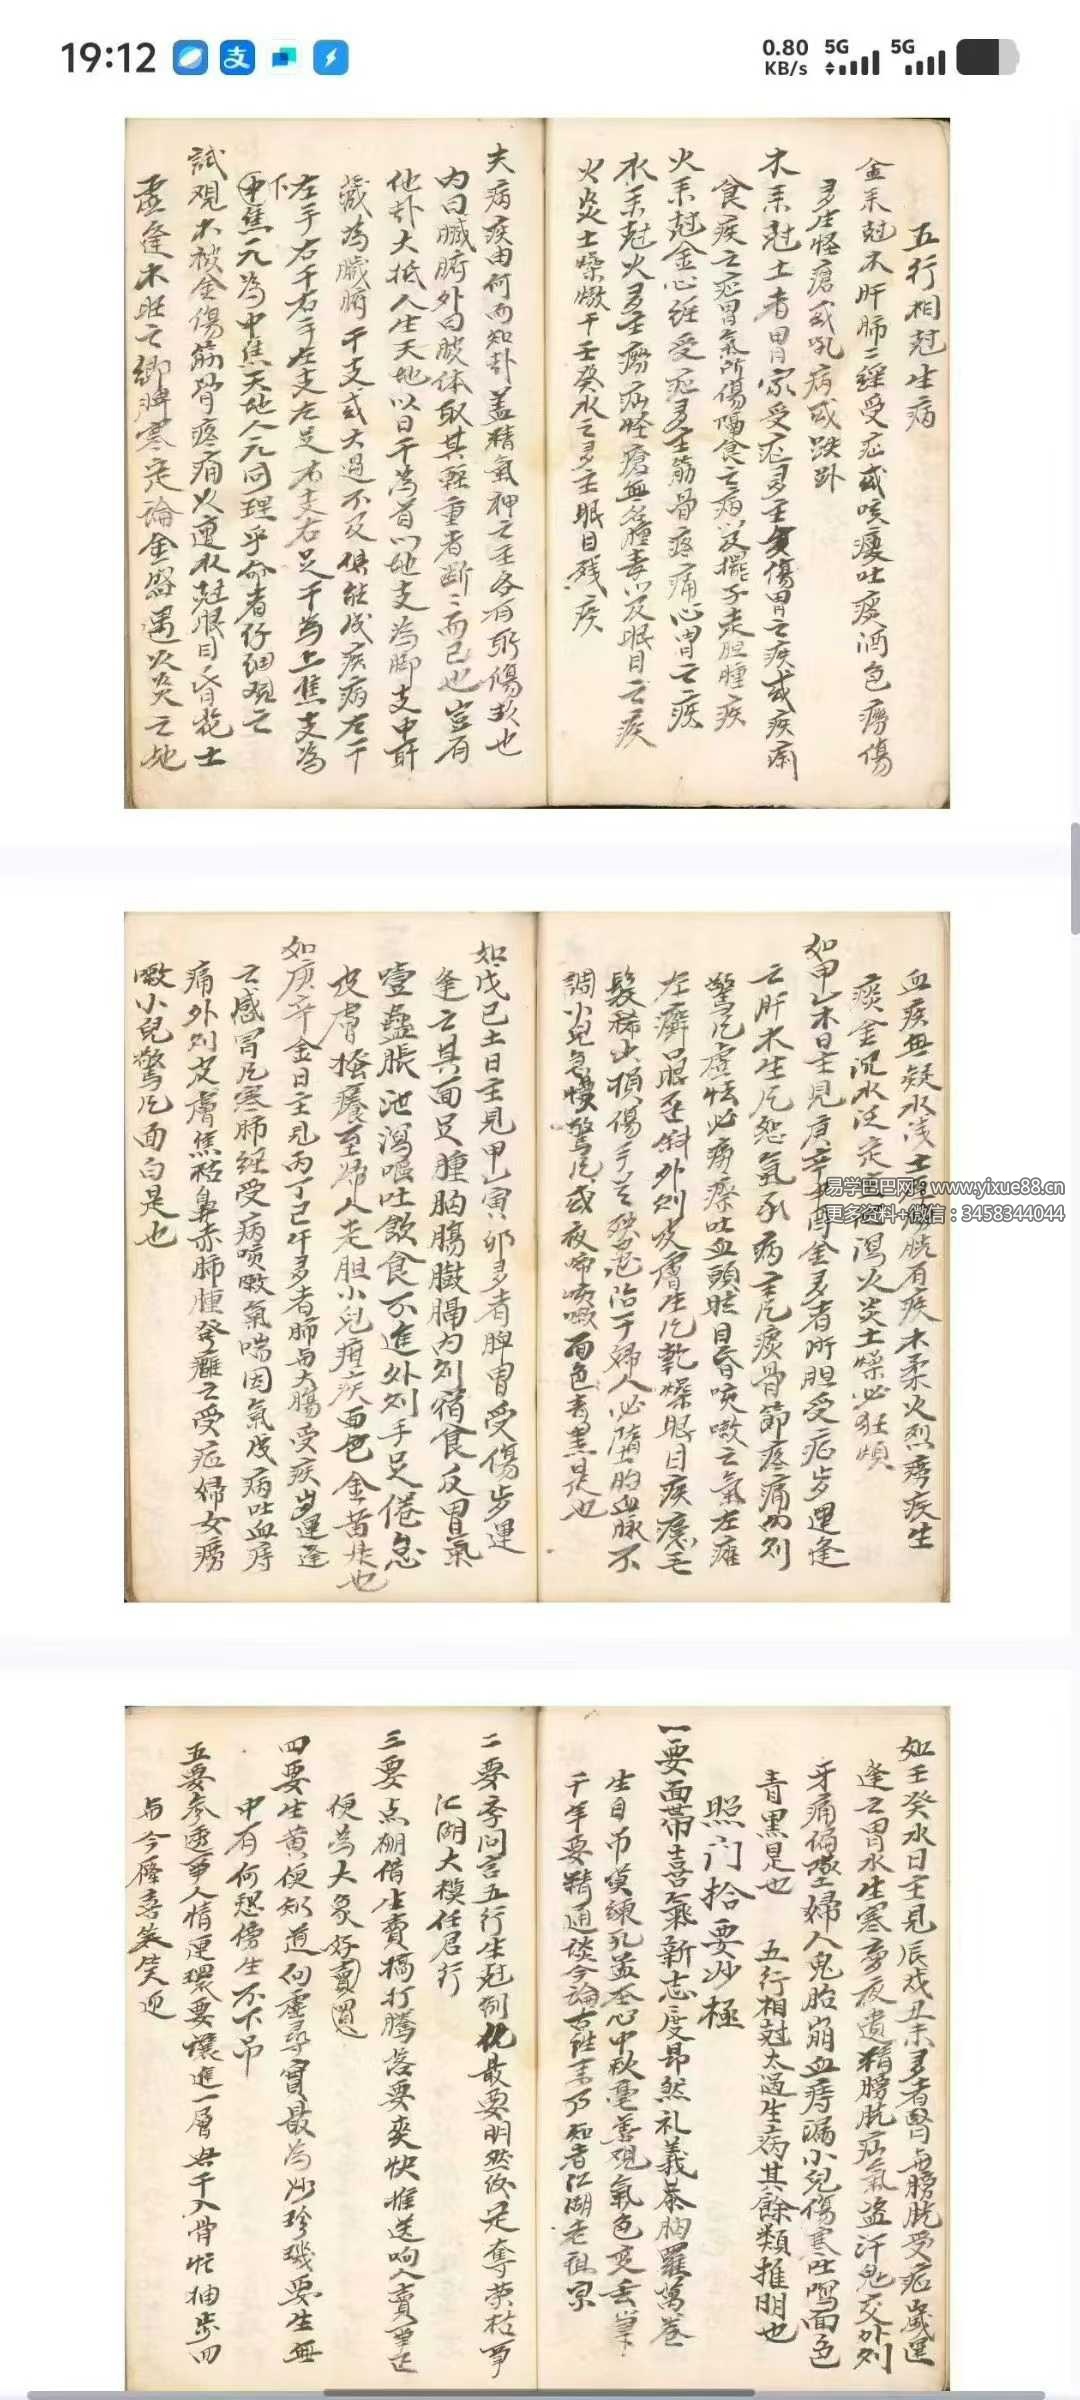 19:12
0.80
KB/s
5G
5G
五行相尅生病
金來尅木肝肺二經受症或咳瘦吐痰酒色癆傷
多生怪瘡或吼病或跌卧
木來尅土者胃家受症多主食傷胃之疾或疾痢
食疾之症胃氣所傷隔食之病以及擺子走胆腫疾
火來尅金心經受症多主筋骨疼痛心胃之疾
水來尅火多主癆病怪瘡無名腫毒以及眼目之疾
火炎土燥燉干壬癸水之多主眼目殘疾
夫病疾由何而知卦蓋精氣神之主各有所傷故也
內曰臟腑外曰肢体取其輕重者斷之而已也豈有
他卦大抵人生天地以日干為首以地支為脚支中所
藏為臟腑干支或太過不及俱能成疾病左干
左手右干右手左支左足右支右足干為上焦支為
下
中焦元為中焦天地人元同理乎命者仔細观之
試观木被金傷筋骨疼痛火遭水尅眼目昏花土
虛逢木旺之鄉脾寒定論金弱遇火炎之地
血疾無疑水浅土重膀胱有疾木柔火烈癆疾生
痰金沉水泛定主瀉火炎土燥必狂煩
如甲乙木日主見庚辛申酉金多者肝胆受症步運逢
之肝木生凡怨氣承病主凡痰骨節疼痛內则
驚凡虛怯必癆瘵吐血頭眩目昏咳嗽之氣左癱
左㾾口眼歪斜外则皮膚生凡乾燥眼目疾患毛
髮稀少損傷手足
婦人必墮胎血脉不
調小兒急慢驚凡或夜啼咳嗽面色青黑是也
如戊己土日主見甲乙寅卯多者脾胃受傷步運
逢之其面足腫胸腸臌膈內则宿食反胃氣
噎蠱脹泄瀉嘔吐飲食不進外则手足倦怠
皮膚搔癢至婦人老胆小兒疳疾面色金黄是也
如庚辛金日主見丙丁己午多者肺与大腸受疾步運逢
之感冒凡寒肺經受病咳嗽氣喘因氣成病吐血痔
痛外则皮膚焦枯鼻赤肺腫發癰之受症婦女癆
嗽小兒驚凡面白是也
易学巴巴网：www.yixue88.cn
更多资料+微信：3458344044
如壬癸水日主見辰戌丑未多者腎与膀胱受症歲運
逢之胃水生寒夢夜遺精膀胱疝氣盗汗鬼交外则
牙痛偏墜婦人鬼胎崩血痔漏小兒傷寒吐瀉面色
青黑是也　五行相尅太過生病其餘類推明也
照门拾要妙極
一要面帶喜氣新志度昂然礼義恭胸羅萬卷
生目吊
心中秋毫善观氣色变
千羊要精通談今論古往来乃知者江湖老祖宗
二要季问言五行生尅制化最要明然後定奪荣枯事
江湖大模任君行
三要点棚借生賣搞打騰落要爽快推送响人賣
便為大象好賣買
四要生黄便知道向虛尋實最為妙珍璣要生無
中有何愁傍生不下吊
五要参透事人情運環要讓進一層
入骨忙抽步四